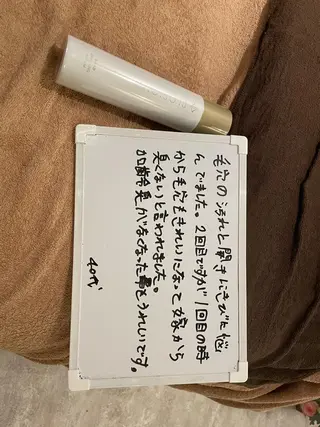 毛穴の汚れと開きにきびで悩
んでました。2回目ですが1回目の時
から毛穴もきれいになって娘から
臭くないと言われました。
加齢臭がなくなった事もうれしいです。
40代